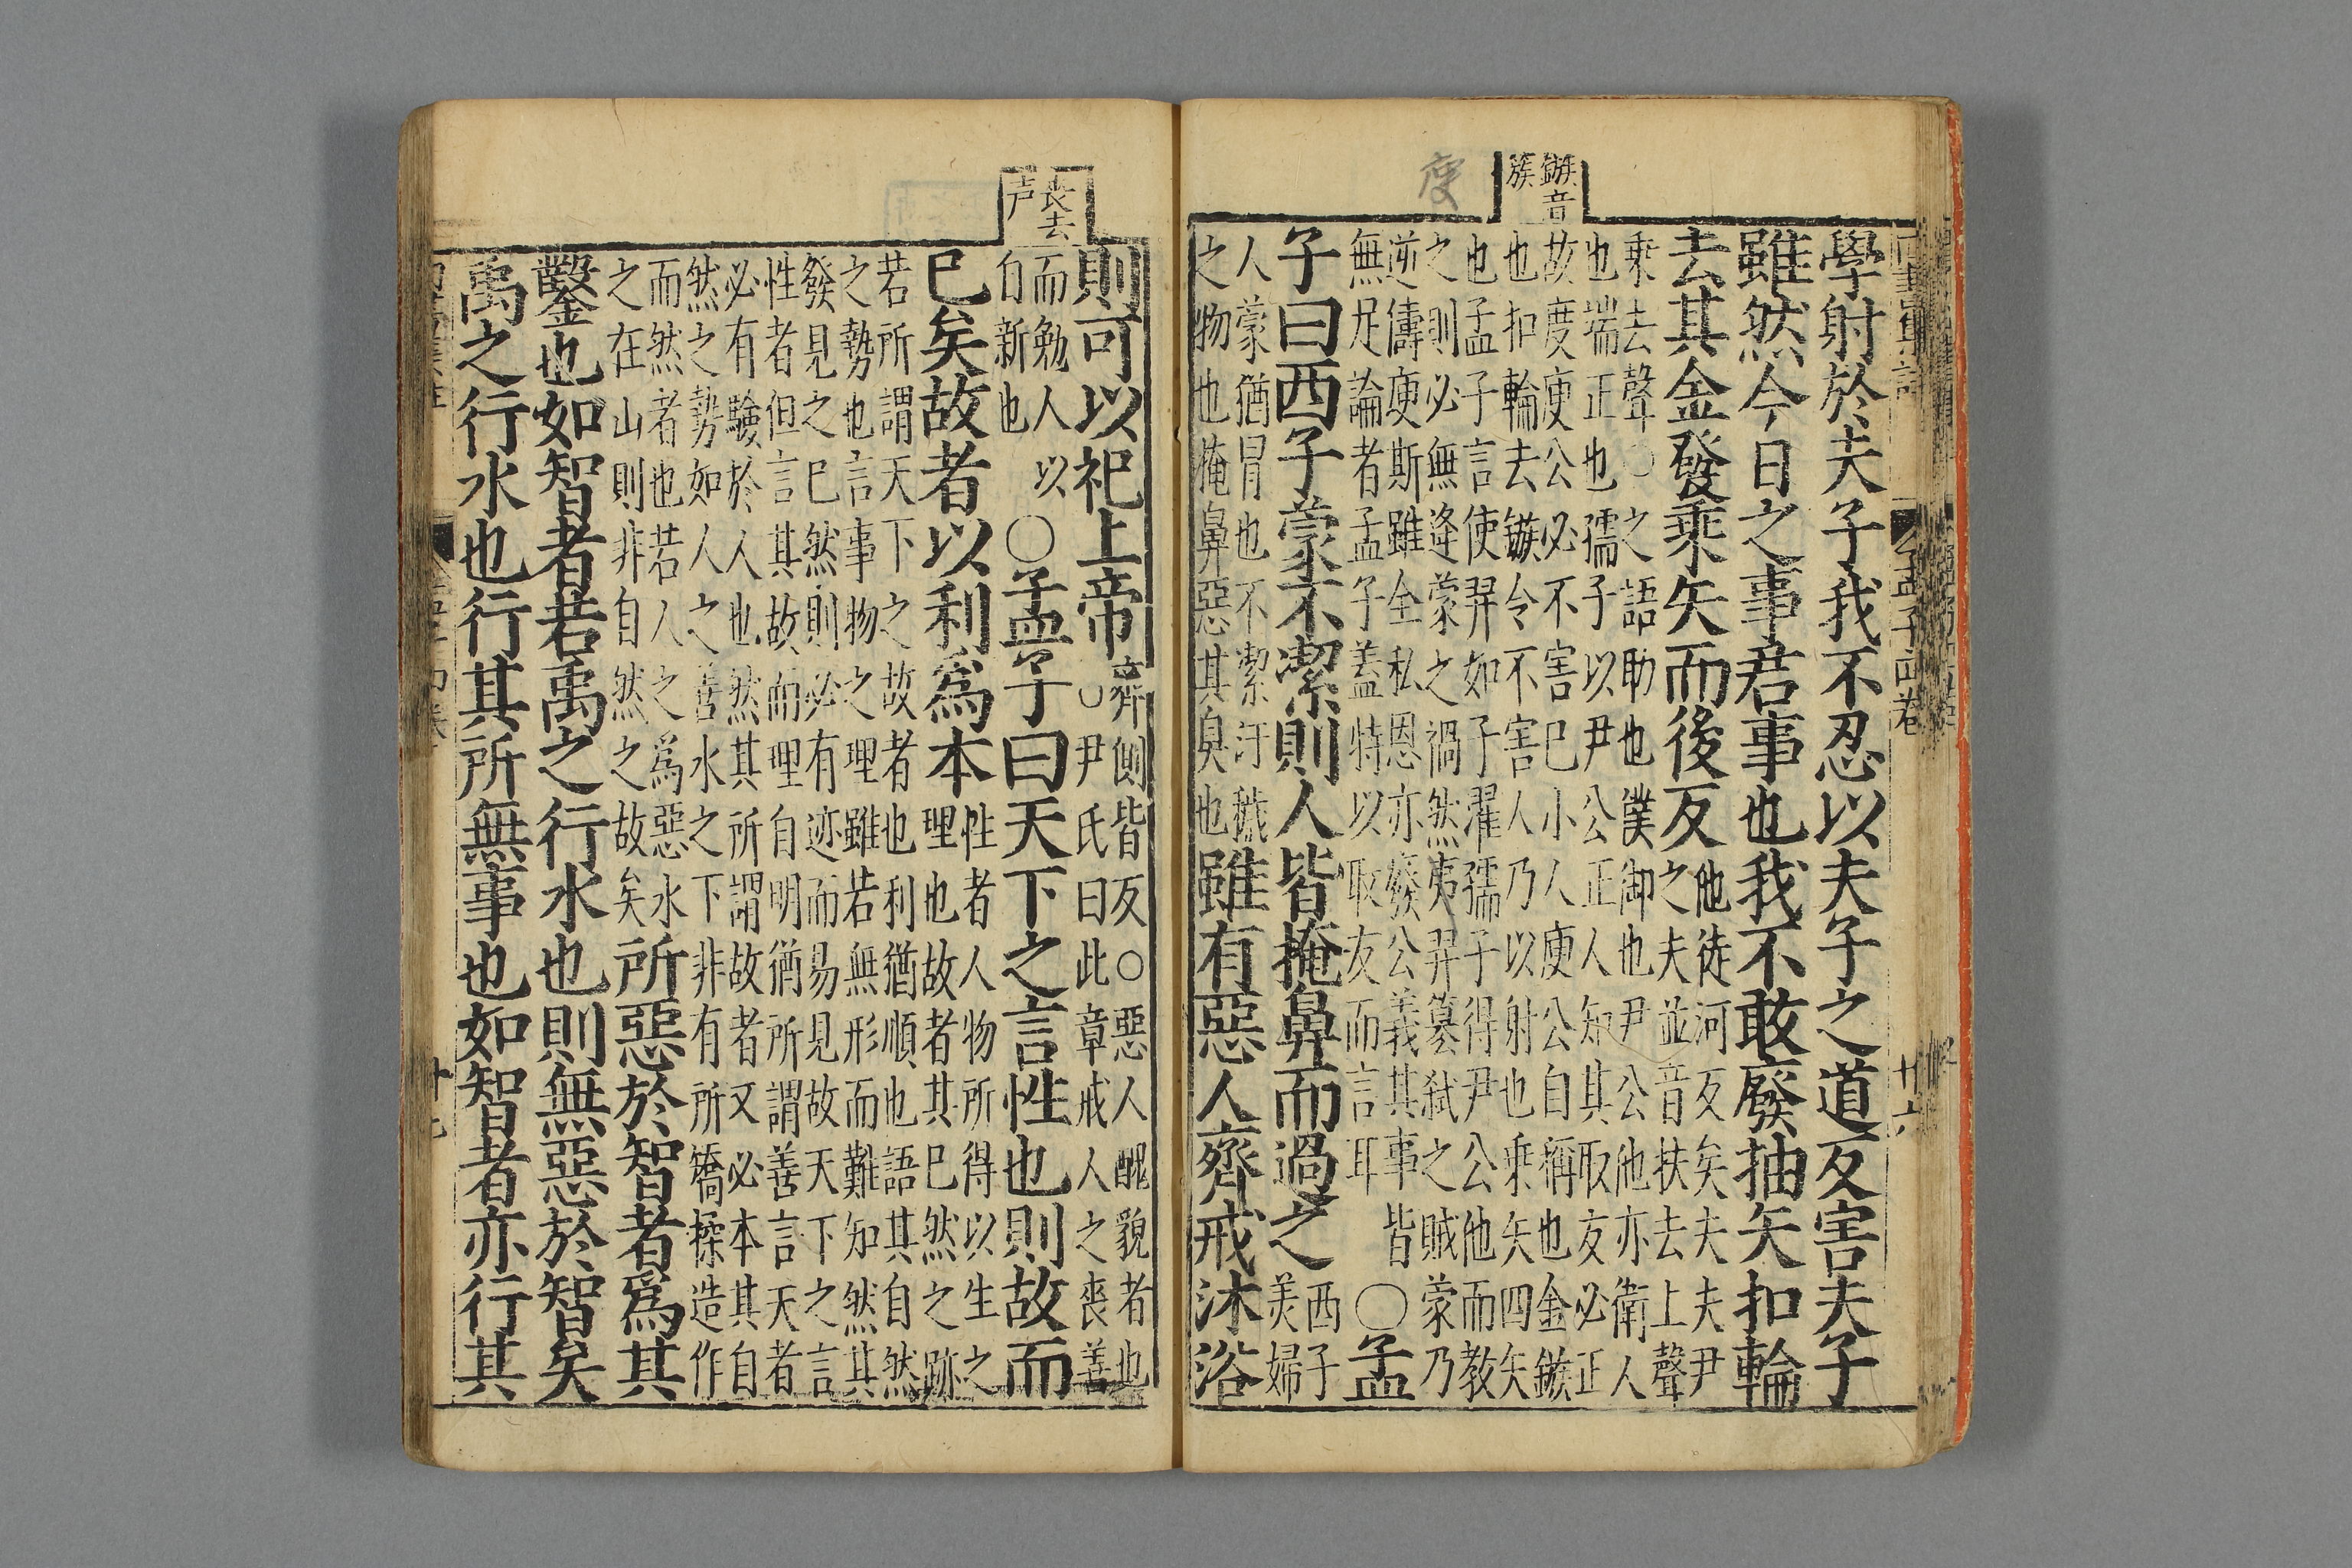 學射於夫子我不忍以夫子之道反害夫子
雖然今日之事君事也我不敢廢抽矢扣輪
去其金發乘矢而後反
他徒河反矣夫夫尹
之夫並音扶去上聲
乗去聲〇之語助也僕御也尹公他亦衛人
也端正也孺子以尹公正人知其取友必正
故度庾公必不害已小人庾公自稱也金鏃
也扣輪去鏃令不害人乃以射也乘矢四矢
也孟子言使羿如子濯孺子得尹公他而教
之則必無逄蒙之禍然夷羿簒弑之賊蒙乃
逆儔庾斯雖全私恩亦廢公義其事皆
無足論者孟子蓋特以取友而言耳
〇孟
子曰西子蒙不潔則人皆掩鼻而過之
西子
美婦
人蒙猶冒也不潔汙穢
之物也掩鼻惡其臭也
雖有惡人齊戒沐浴
鏃音
簇
孟子四卷
廿六
則可以祀上帝
齊側皆反〇惡人醜貌者也
〇尹氏曰此章戒人之喪善
而勉人以
自新也
〇孟子曰天下之言性也則故而
已矣故者以利爲本
性者人物所得以生之
理也故者其已然之跡
若所謂天下之故者也利猶順也語其自然
之勢也言事物之理雖若無形而難知然其
發見之已然則必有迹而易見故天下之言
性者但言其故而理自明猶所謂善言天者
必有驗於人也然其所謂故者又必本其自
然之勢如人之善水之下非有所矯揉造作
而然者也若人之爲惡水
之在山則非自然之故矣
所惡於智者爲其
鑿也如智者若禹之行水也則無惡於智矣
禹之行水也行其所無事也如智者亦行其
喪去
声